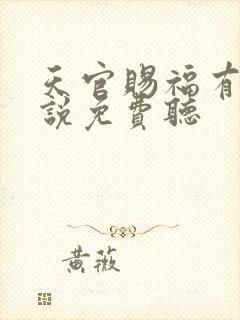 天官賜福有
說免費聽
黃薇